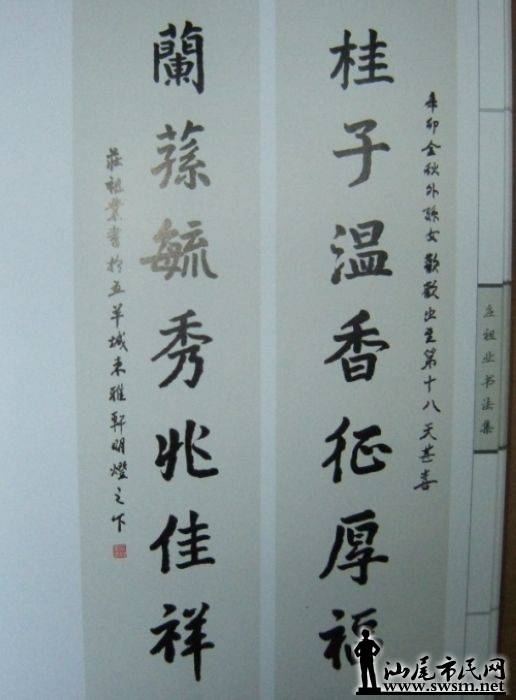 辛卯金秋外孫女歡歡出生第十八天甚喜
桂子温香征厚福
蘭蓀毓秀兆佳祥
莊祖業書於五羊城東雅軒明燈之下
庄祖业书法集
汕尾市民网
www.swsm.net